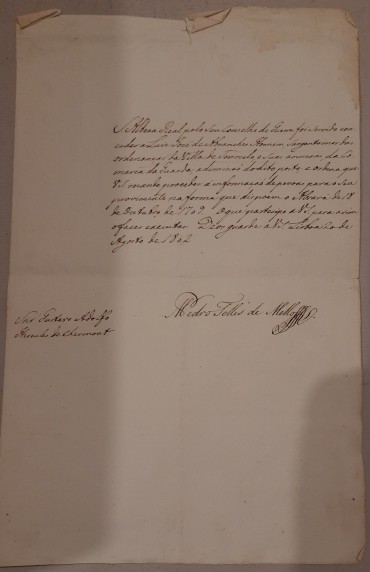 S. Alteza Real pelo Seu Conselho de Guerra foi Servido con
ceder a Luis Joze de Abranches Homem Sargento mor das
ordenanças da Villa de e Seus annexos da Co
marca da Guarda, a demissão do dito posto, e ordena que
V.S. mande proceder a informaçaõ de pessoa para o Seu
provimento na forma que dispoem o Alvará de 18
de Outubro de 1709. O que participo a V.S. para assim
o fazer executar. Deos guarde a V.S. Lisboa 20 de
Agosto de 1802
Pedro Telles de Mello
Snr. Gustavo Adolfo
de Chermont